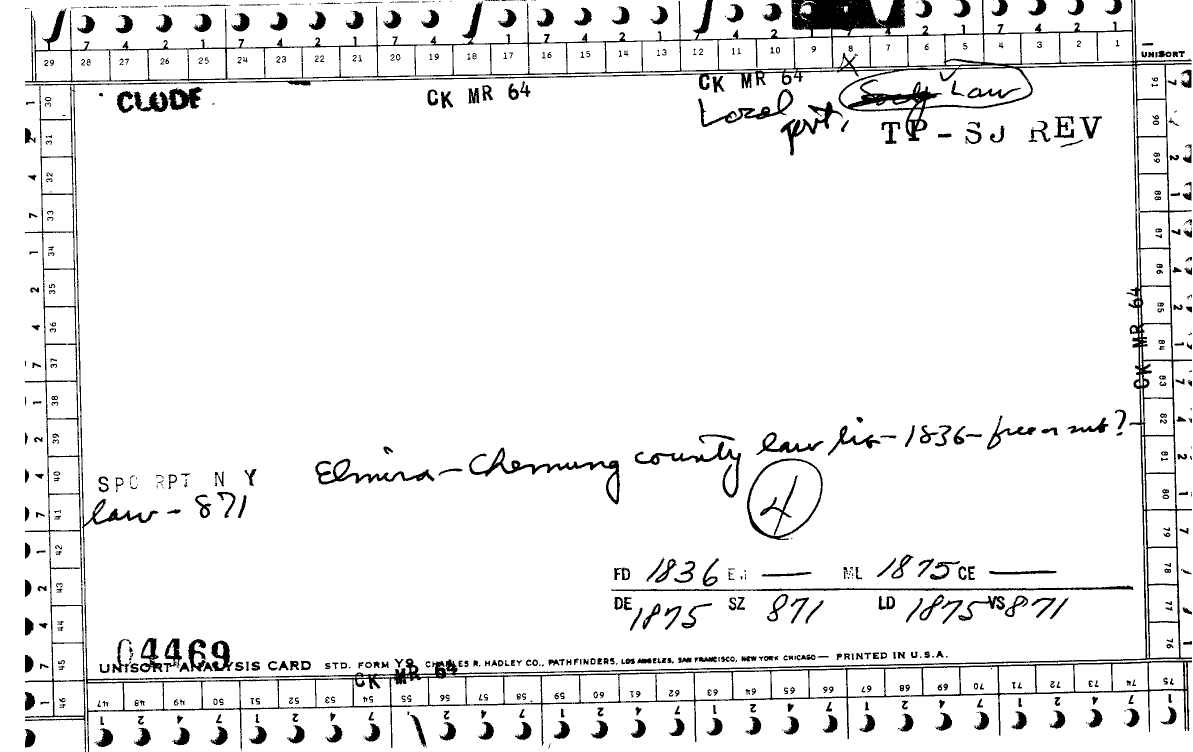 7 4 2 1 7 4 2 1 7 4 2 1 7 4 2 1 7 4 2 1 7 4 2 1 7 4 2 1
29 28 27 26 25 24 23 22 21 20 19 18 17 16 15 14 13 12 11 10 9 8 7 6 5 4 3 2 1
UNISORT
X
CLUDE
CK MR 64
CK MR 64
Local govt.
Law
TP - SJ REV
1 2 4 7 1 2 4 7 1 2 4 7 1 2 4 7 1
30 31 32 33 34 35 36 37 38 39 40 41 42 43 44 45 46
91 90 89 88 87 86 85 84 83 82 81 80 79 78 77 76
CK MR 64
Elmira - Chemung county law lib - 1836 - free or sub? -
SPC RPT N Y
law - 871
4
FD 1836 — ML 1875 CE —
DE 1875 SZ 871 LD 1875 VS 871
04469
UNISORT ANALYSIS CARD STD. FORM Y9 CHARLES R. HADLEY CO., PATHFINDERS, LOS ANGELES, SAN FRANCISCO, NEW YORK CHICAGO — PRINTED IN U.S.A.
CK MR 64
47 48 49 50 51 52 53 54 55 56 57 58 59 60 61 62 63 64 65 66 67 68 69 70 71 72 73 74 75
1 2 4 7 1 2 4 7 1 2 4 7 1 2 4 7 1 2 4 7 1 2 4 7 1